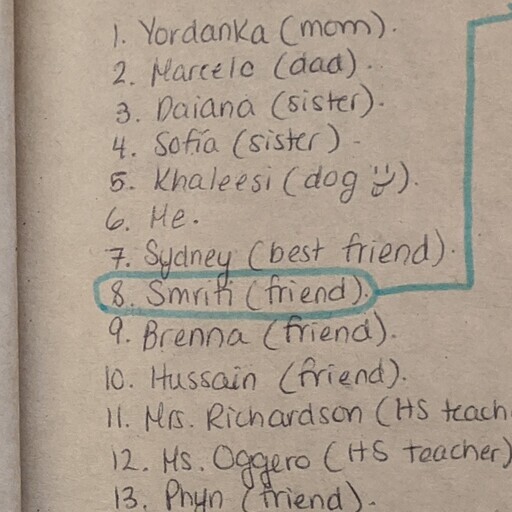 1. Yordanka (mom).
2. Marcelo (dad).
3. Daiana (sister).
4. Sofía (sister)
5. Khaleesi (dog ).
6. Me.
7. Sydney (best friend).
8. Smriti (friend).
9. Brenna (friend).
10. Hussain (friend).
11. Mrs. Richardson (HS teach
12. Ms. Oggero (HS teacher)
13. Phyn (friend).